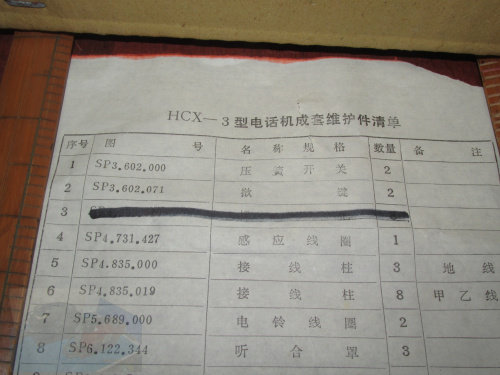 HCX—3型电话机成套维护件清单
序号 图号 名称规格 数量 备注
1 SP3.602.000 压簧开关 2
2 SP3.602.071 揿键 2
3
4 SP4.731.427 感应线圈 1
5 SP4.835.000 接线柱 3 地线
6 SP4.835.019 接线柱 8 甲乙线
7 SP5.689.000 电铃线圈 2
8 SP6.122.344 听合罩 3